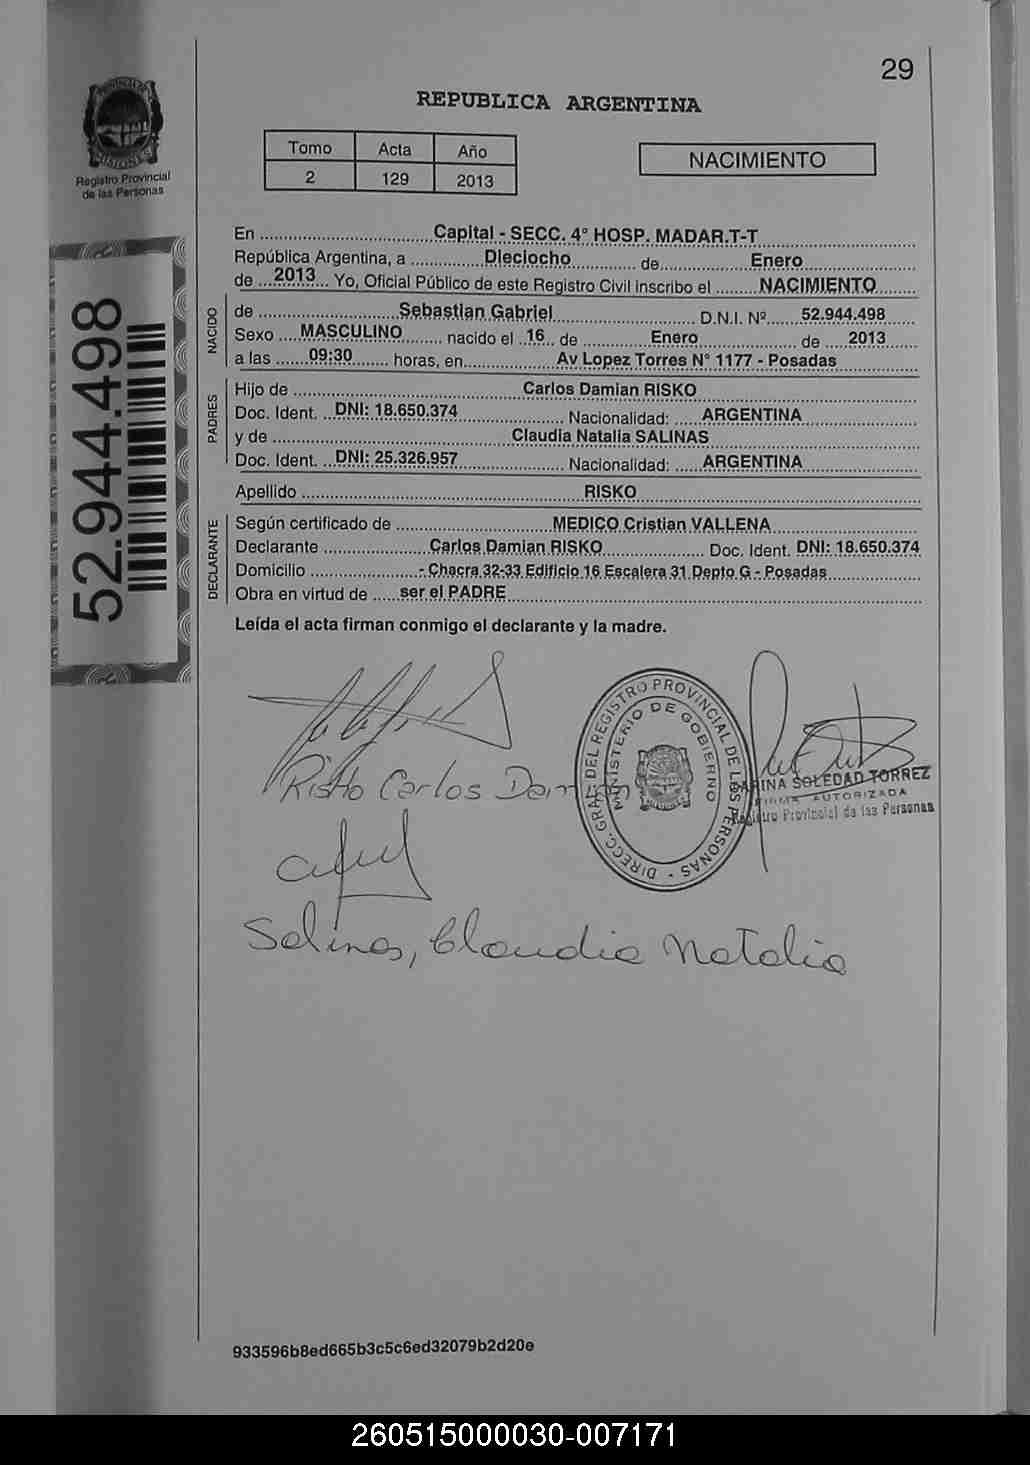 29
REPUBLICA ARGENTINA
PROVINCIA DE MISIONES
Registro Provincial
de las Personas
Tomo Acta Año
2 129 2013
NACIMIENTO
52.944.498
En Capital - SECC. 4° HOSP. MADAR.T-T
República Argentina, a Dieciocho de Enero
de 2013 Yo, Oficial Público de este Registro Civil inscribo el NACIMIENTO
NACIDO
de Sebastian Gabriel D.N.I. Nº 52.944.498
Sexo MASCULINO nacido el 16 de Enero de 2013
a las 09:30 horas, en Av Lopez Torres N° 1177 - Posadas
PADRES
Hijo de Carlos Damian RISKO
Doc. Ident. DNI: 18.650.374 Nacionalidad: ARGENTINA
y de Claudia Natalia SALINAS
Doc. Ident. DNI: 25.326.957 Nacionalidad: ARGENTINA
Apellido RISKO
DECLARANTE
Según certificado de MEDICO Cristian VALLENA
Declarante Carlos Damian RISKO Doc. Ident. DNI: 18.650.374
Domicilio - Chacra 32-33 Edificio 16 Escalera 31 Depto G - Posadas
Obra en virtud de ser el PADRE
Leída el acta firman conmigo el declarante y la madre.
Risko Carlos Damian
DIRECC. GRAL DEL REGISTRO PROVINCIAL DE LAS PERSONAS
MINISTERIO DE GOBIERNO
SOLEDAD TORREZ
FIRMA AUTORIZADA
Registro Provincial de las Personas
Salinas, Claudia Natalia
933596b8ed665b3c5c6ed32079b2d20e
260515000030-007171